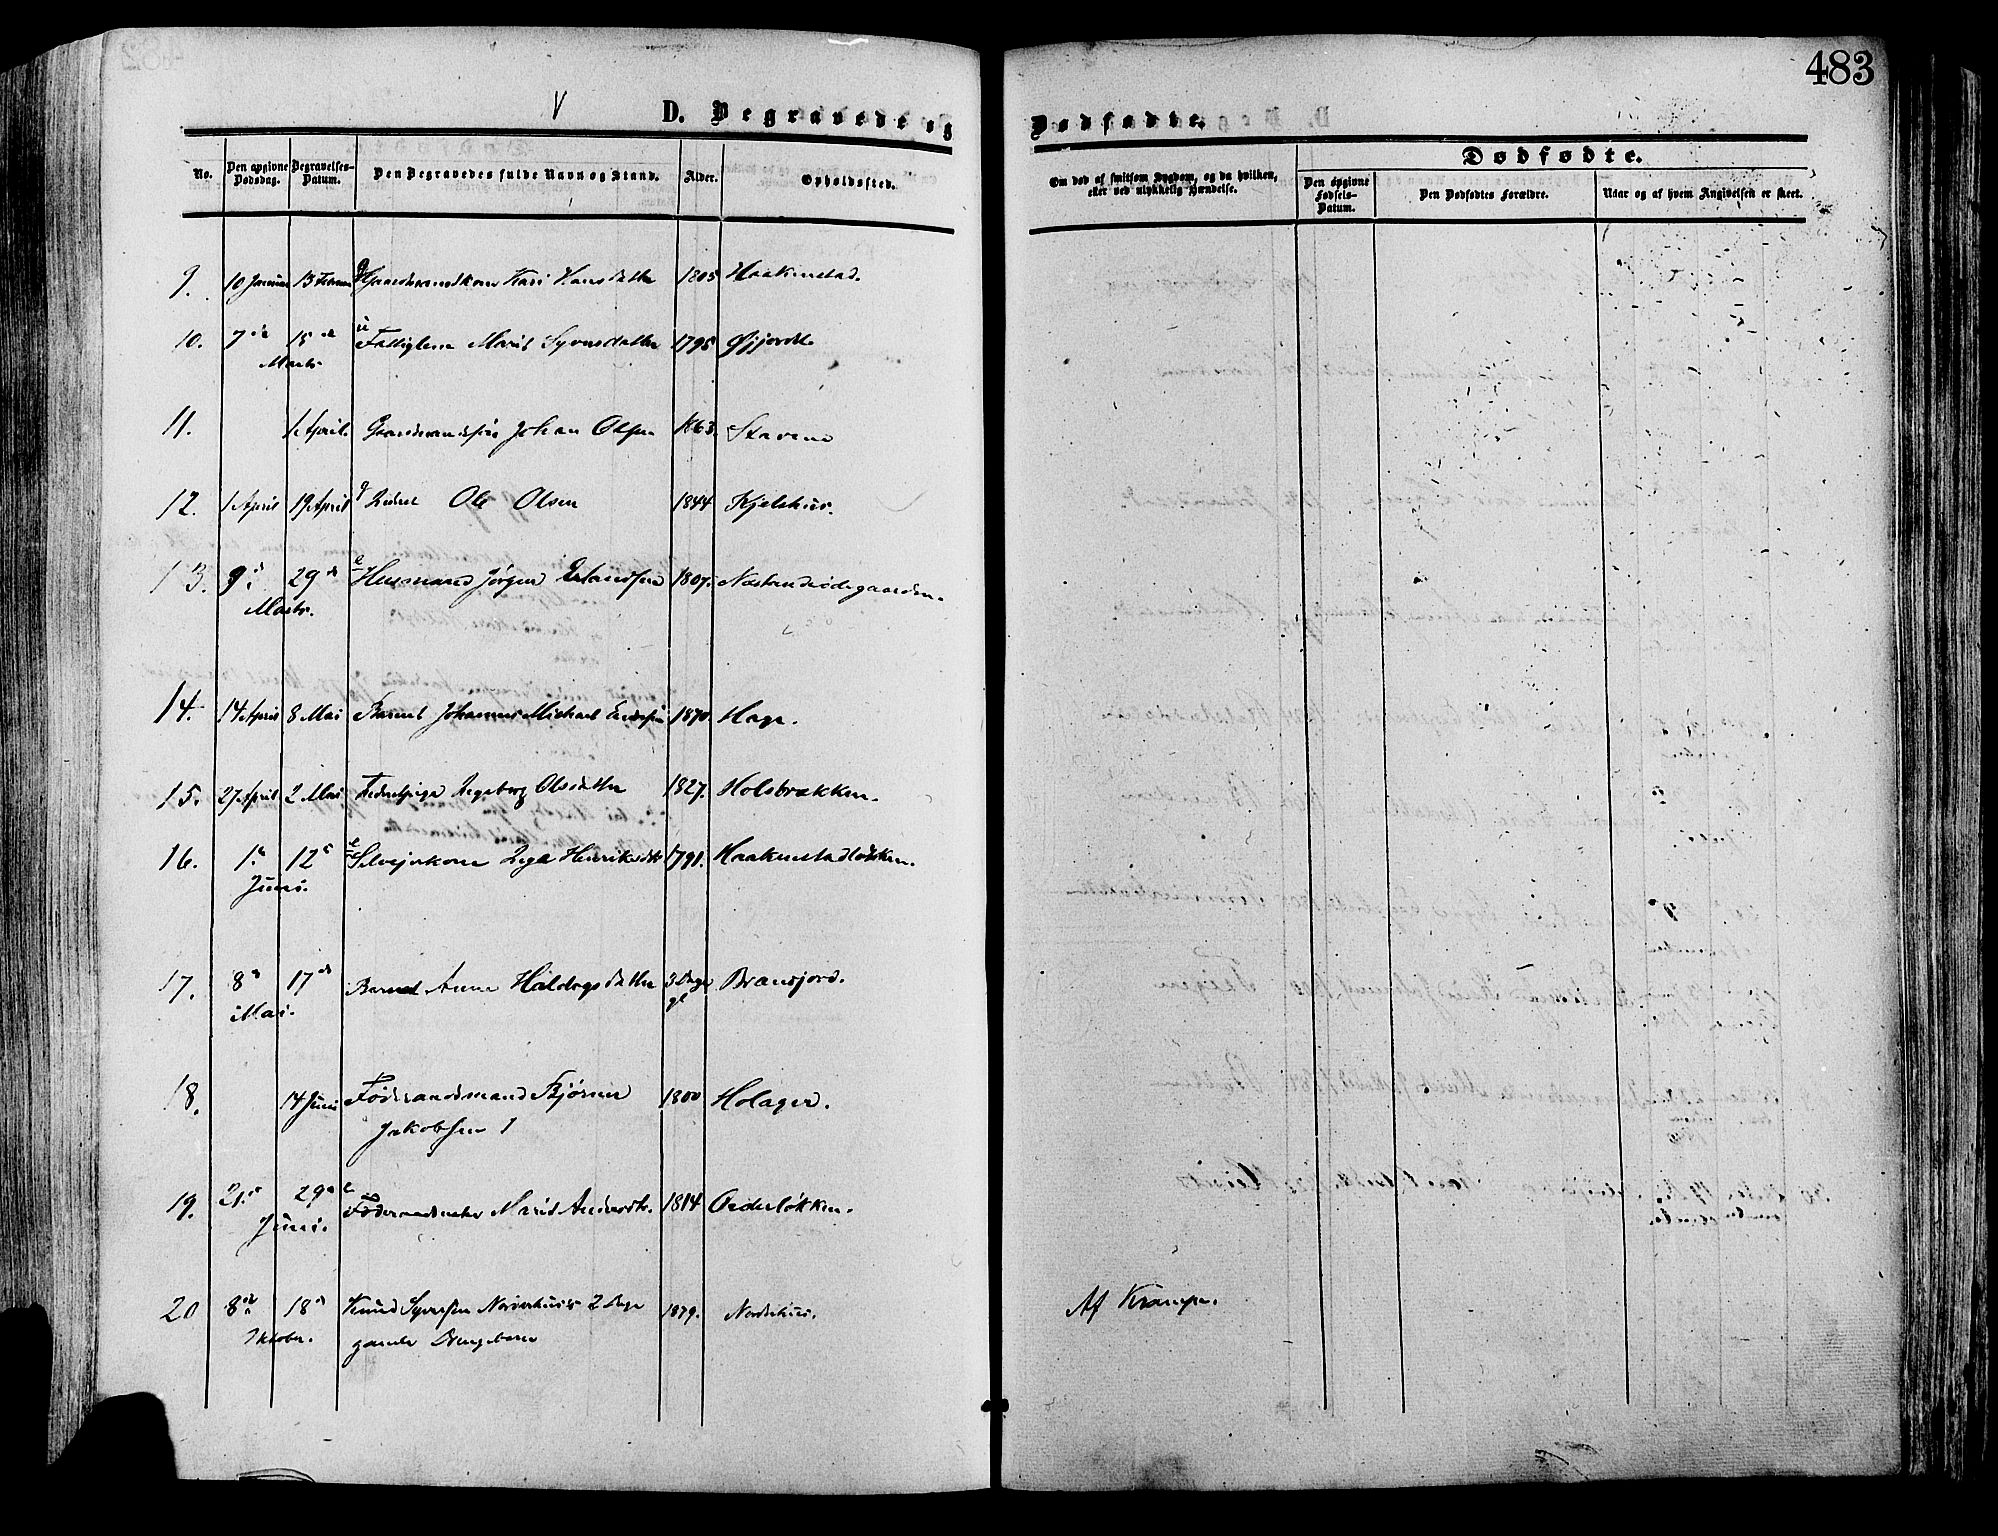 483
V
D. Begravede og
Dødfødte.
No.
Den opgivne Dødsdag.
Begravelses-Datum.
Den Begravedes fulde Navn og Stand.
Alder.
Opholdssted.
Om død af smitsom Sygdom, og da hvilken, eller ved ulykkelig Hændelse.
Dødfødte.
Den opgivne Fødsels-Datum.
Den Dødfødtes Forældre.
Naar og af hvem Angivelsen er skeet.
9. 10 Januar 13 Februar Gaardmandkone Kari Hansdatter 1805 Haakenstad.
10. 7de 15de Fattiglem Marit Syversdatter 1795 Øjjordet
Marts
11. 1 April. Gaardmandsøn Johan Olsen 1863. Stavene
12. 1 April 19 April Ole Olsen 1844 Kjelshus.
13. 9de 29de Husmand Jørgen Erlandsen 1807. Nøstandødegaarden.
Marts.
14. 14 April 8 Mai Barnet Johannes Michael 1870. Hage.
15. 27 April 2 Mai Ingeborg Olsdatter 1827. Holsbrækken.
16. 1 12 Inga Henriksdtr 1791. Haakenstadløkken.
Juni.
17. 8de 17de Barnet Anne Haldogsdatter 3 Dage Bransjord.
Mai. gl
18. 14 Juni Føderaadsmand Bjørner 1800 Holager.
Jakobsen
19. 21. 29 Marit Andersdtr. 1814
Juni.
20 8de 18de Knud Syversen Norderhuus 2 Dage 1879. Norderhuus. Af Krampe.
Oktober. gamle Drengebarn